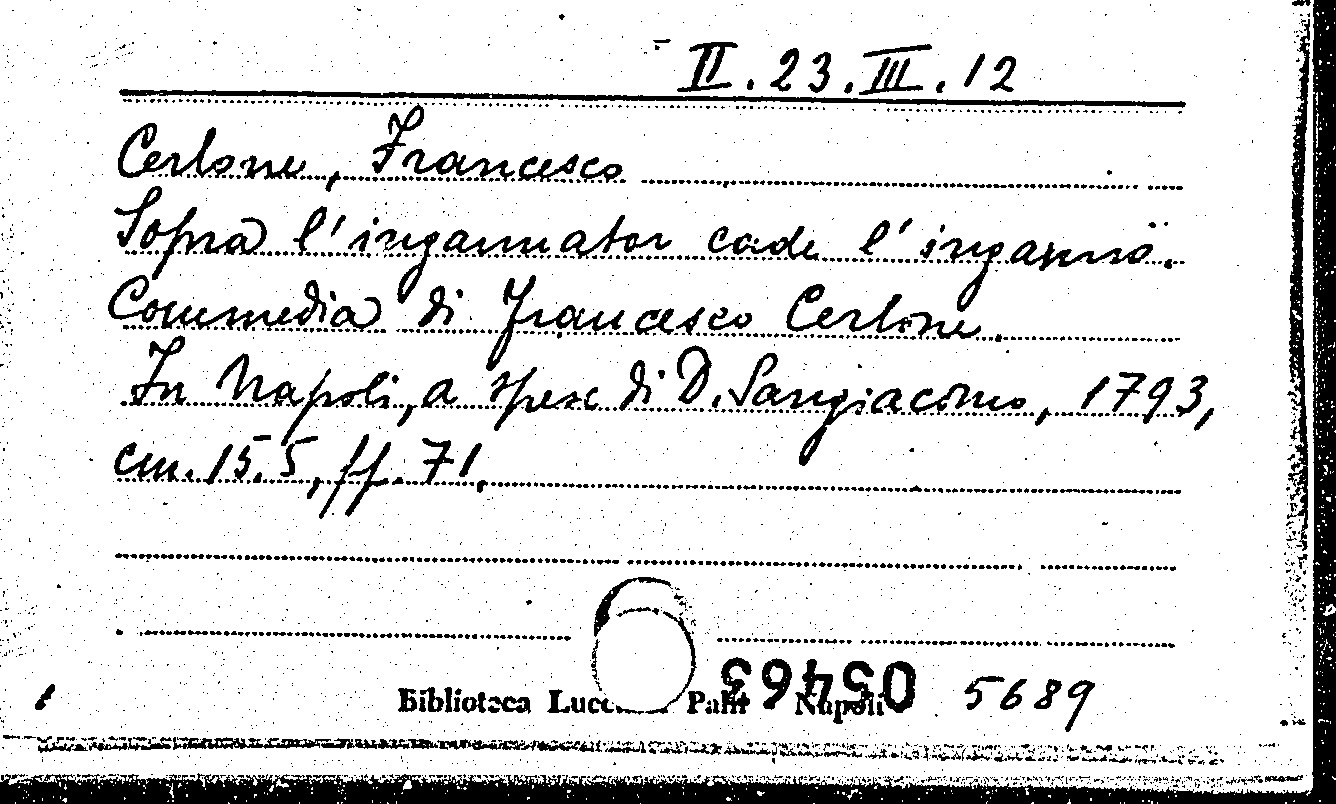 II.23.III.12
Cerlone, Francesco
Sopra l'ingannator cade l'inganno.
Commedia di Francesco Cerlone.
In Napoli, a spese di D. Sangiacomo, 1793,
cm. 15.5, ff. 71.
Biblioteca Napoli
05463
5689